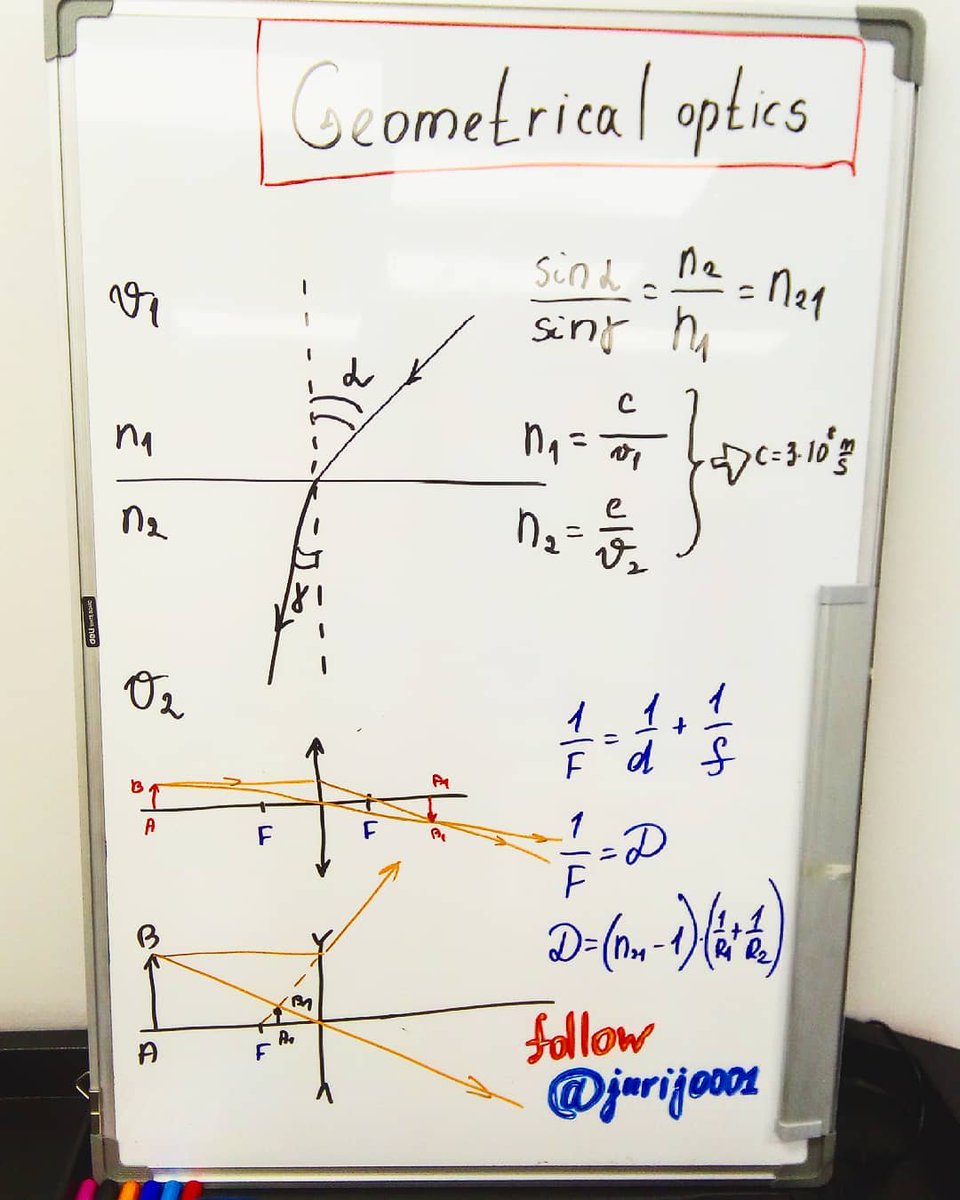 Geometrical optics
ϑ1
n1
n2
ϑ2
α
γ
sinα/sinγ = n2/n1 = n21
n1 = c/ϑ1
n2 = c/ϑ2
⇨ c=3·10⁸ m/s
deli
B
A
F
F
A1
B1
1/F = 1/d + 1/f
1/F = D
D=(n21-1)·(1/R1+1/R2)
B
A
F
B1
A1
follow
@jurij0001